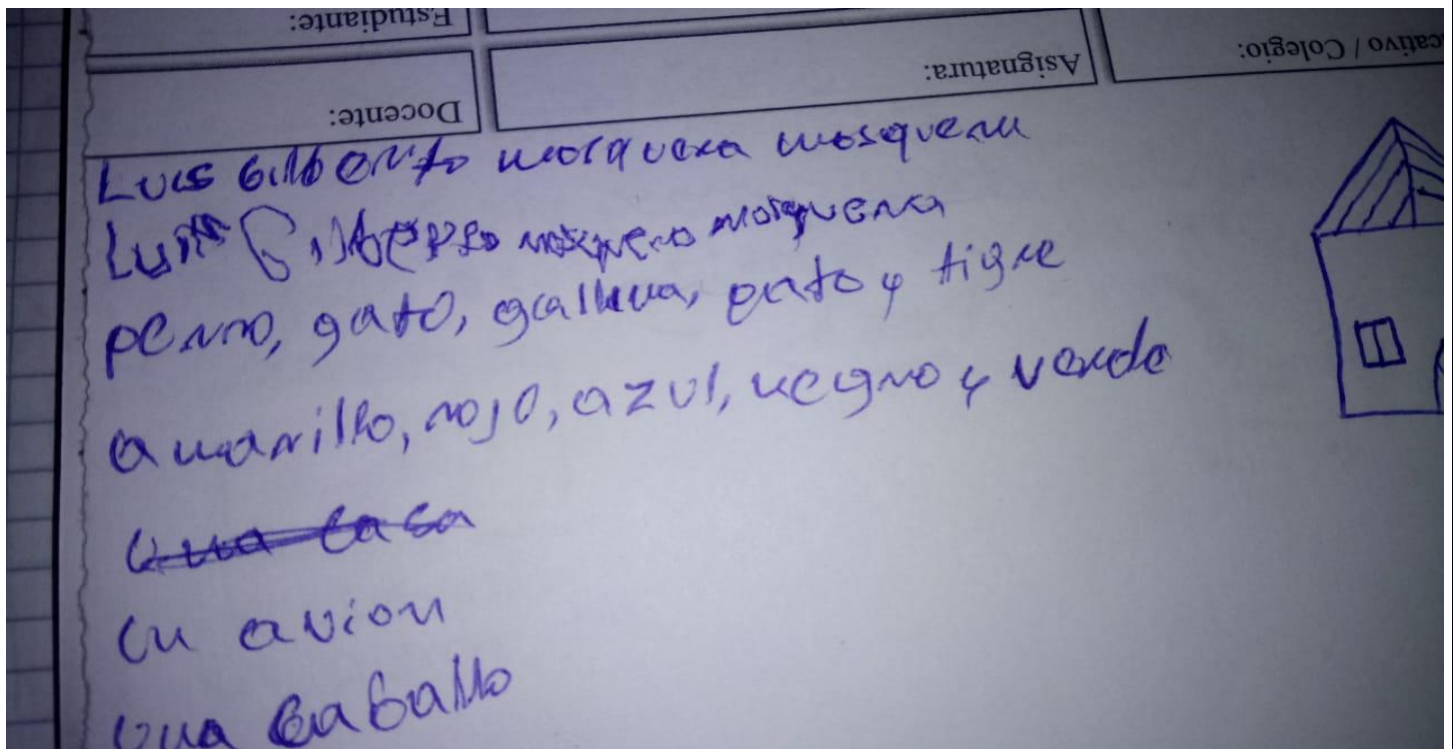 Estudiante:
Docente:
Asignatura:
cativo / Colegio:
Luis Gilberto mosquera mosquera
Luis Gilberto mosquera mosquera
perro, gato, gallina, pato y tigre
amarillo, rojo, azul, negro y verde
una casa
un avion
una caballo